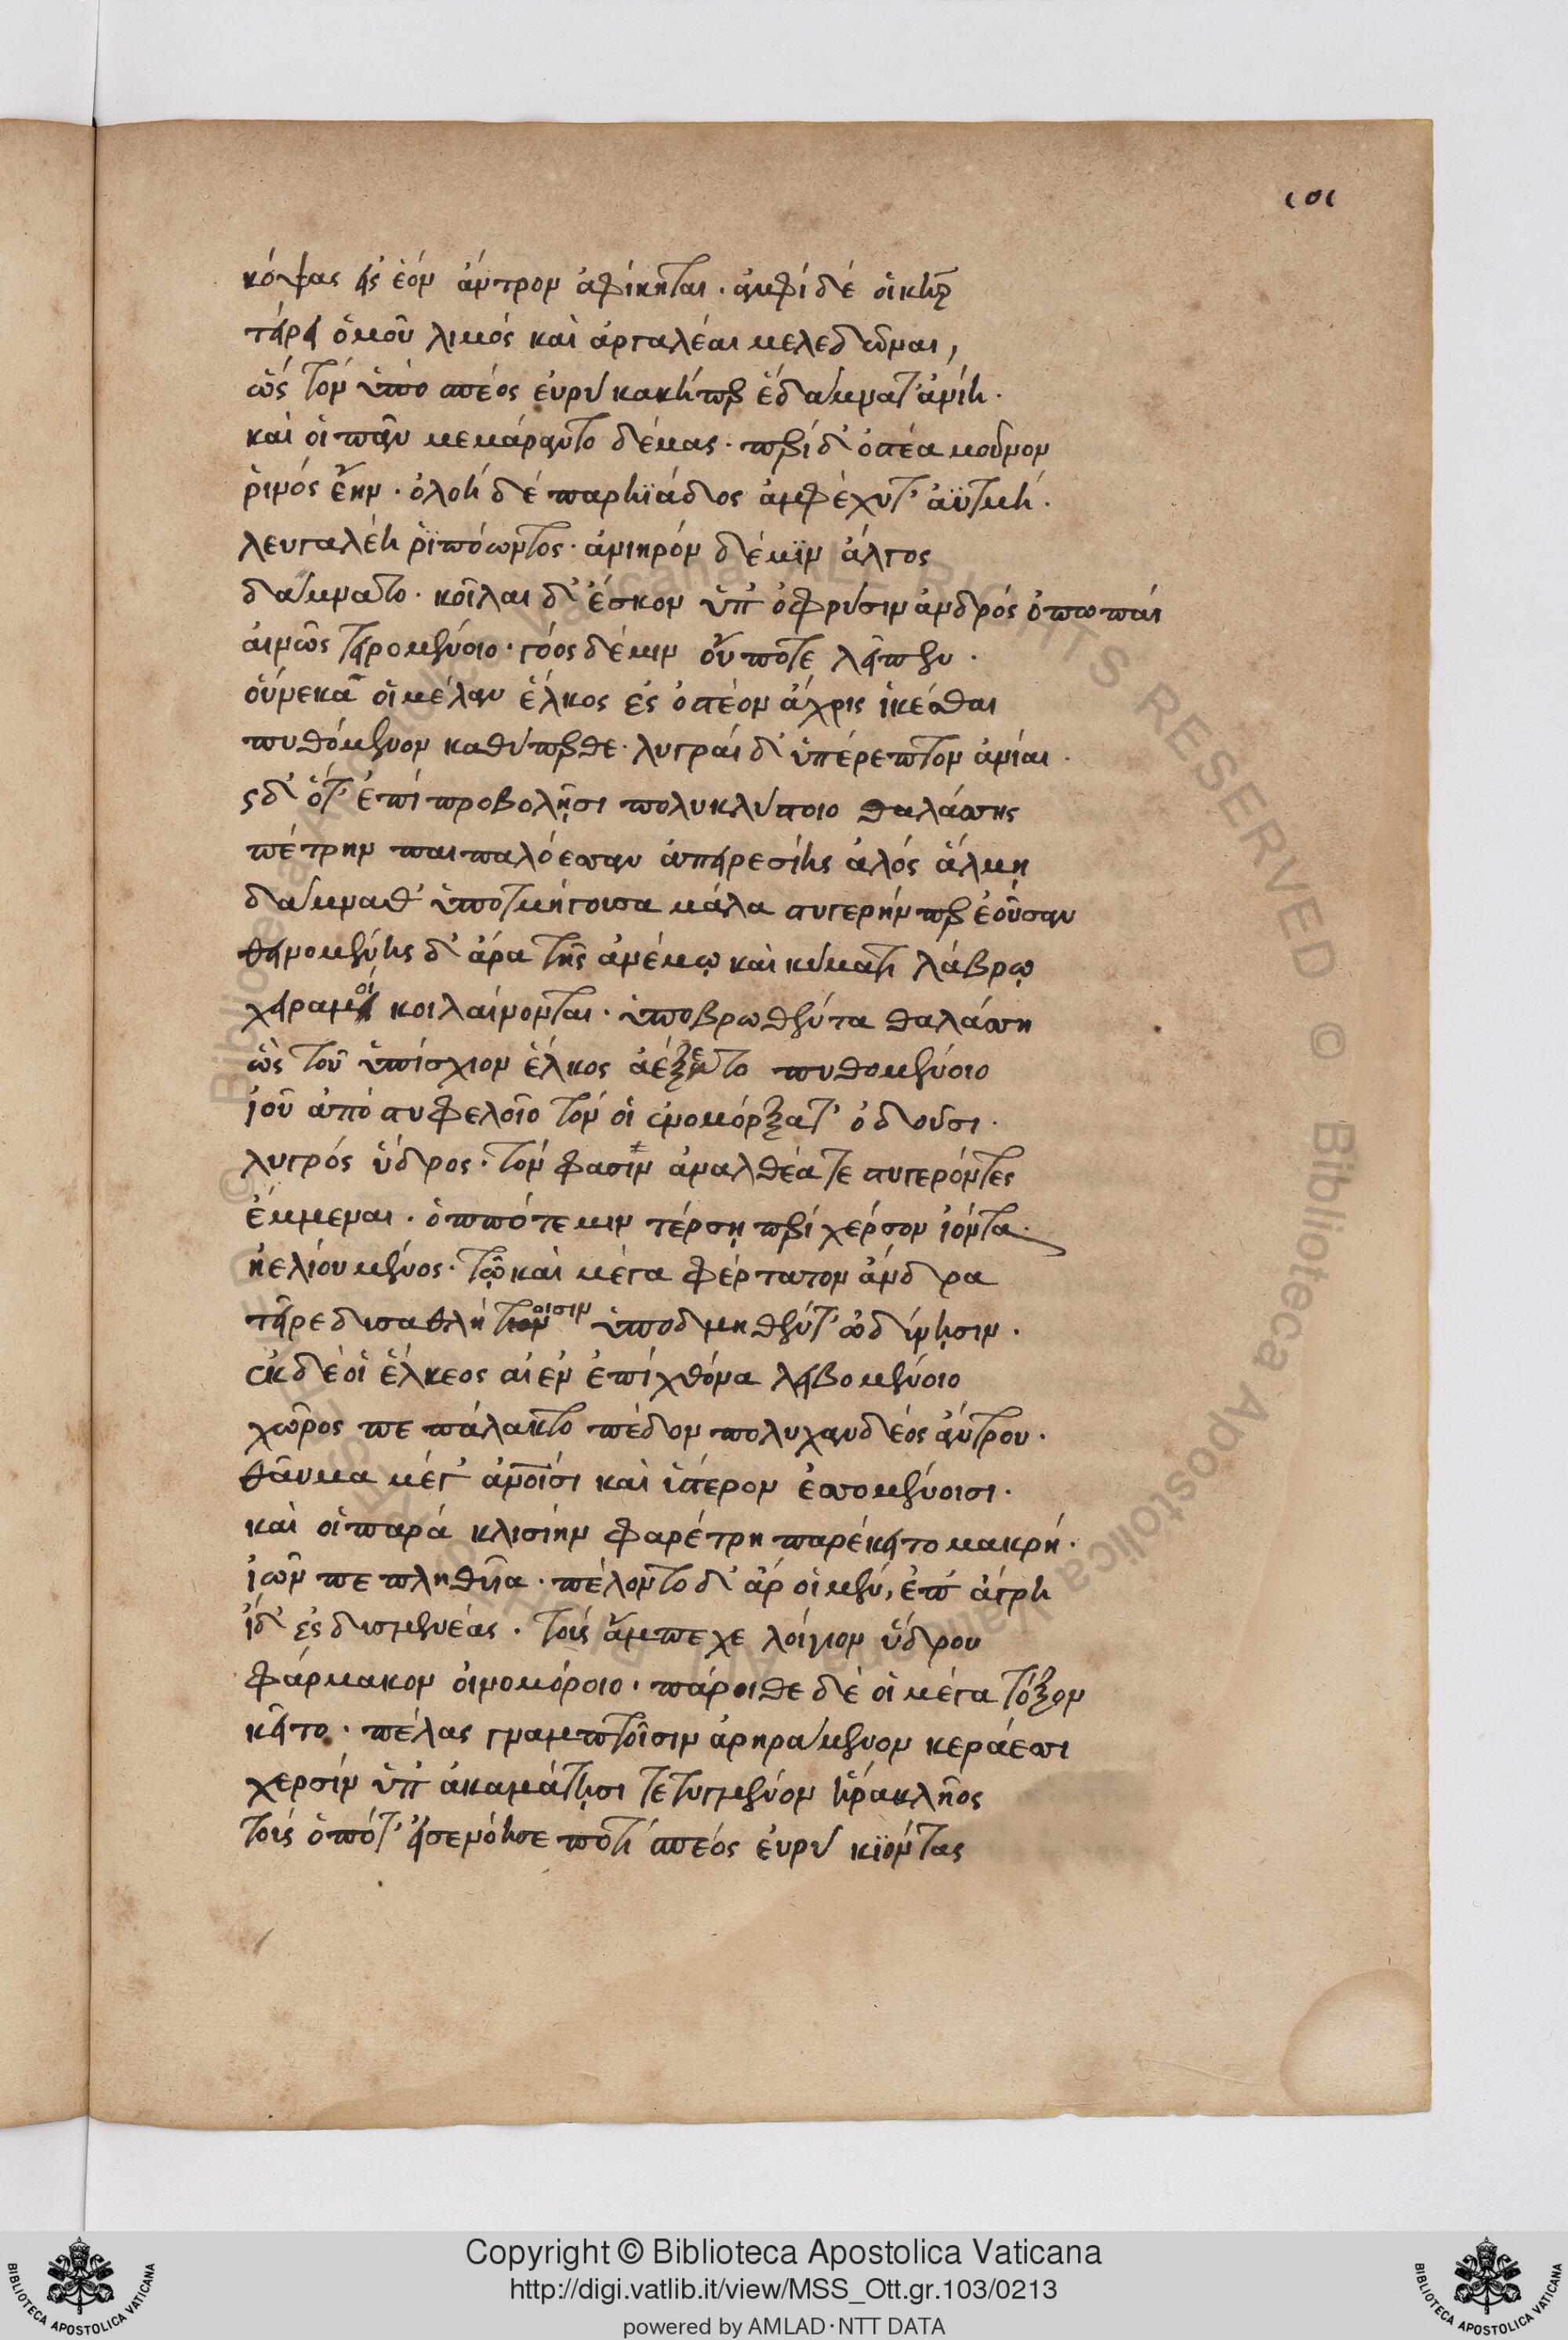 101
κόψας εἰς ἑὸν ἄντρον ἀφίκηται· ἀμφὶ δέ οἱ κῆρ
τείρει ὁμοῦ λιμός καὶ ἀργαλέαι μελεδῶναι,
ὣς τὸν ὑπὸ σπέος εὐρὺ κακὴ περ ἐδάμνατ' ἀνίη·
καί οἱ πᾶν μεμάραντο δέμας· περὶ δ' ὀστέα μοῦνον
ῥινός ἔην· ὀλοὴ δὲ παρηϊάδος ἀμφέχυτ' ἀϋτμὴ·
λευγαλέη ῥιπόωντος· ἀνιηρὸν δέ μϊν ἄλγος
δάμνατο· κοῖλαι δ' ἔσκον ὑπ' ὀφρύσιν ἀνδρός ὀπωπαὶ
αἰνῶς τειρομένοιο· γόος δέ μιν οὔποτε λεῖπεν·
οὕνεκά οἱ μέλαν ἕλκος ἐς ὀστέον ἄχρις ἱκέσθαι
πυθόμενον καθύπερθε· λυγραὶ δ' ὑπέρεπτον ἀνίαι·
ὡς δ' ὅτ' ἐπὶ προβολῇσι πολυκλύστοιο θαλάσσης
πέτρην παιπαλόεσσαν ἀπειρεσίης ἁλός ἅλμη
δάμναθ' ὑποτμήγουσα μάλα στυγερήν περ ἐοῦσαν
θεινομένης δ' ἄρα τῆς ἀνέμῳ καὶ κύματι λάβρῳ
χηραμοὶ κοιλαίνονται· ὑποβρωθέντα θαλάσση
ὣς τοῦ ὑπίσχιον ἕλκος ἀέξετο πυθομένοιο
ἰοῦ ἀπὸ στυφελοῖο τόν οἱ ἐνομόρξατ' ὀδοῦσι·
λυγρός ὕδρος· τόν φασιν ἀναλθέα τε στυγερόν τες
ἔμμεναι· ὁππότε μιν τέρσῃ περὶ χέρσον ἰόντα·
ἠελίου μένος· τῷ καὶ μέγα φέρτατον ἄνδρα
τεῖρε δυσαλθήτοισιν ὑποδμηθέντ' ὀδύνῃσιν·
ἐκ δέ οἱ ἕλκεος αἰὲν ἐπὶ χθόνα λειβομένοιο
χῶρος πεπάλακτο πέδον πολυχανδέος ἄντρου·
θαῦμα μέγ' ἀνοῖσι καὶ ὕστερον ἐσσομένοισι·
καί οἱ παρὰ κλισίην φαρέτρη παρέκειτο μακρή·
ἰῶν πεπληθυῖα· πέλοντο δ' ἄρ οἱ μέν, ἐπ' ἄγρη
ἰδ' ἐς δυσμενέας· τοῖς ἄμπεχε λοίγιον ὕδρου
φάρμακον οἰνομόροιο· πάροιθε δέ οἱ μέγα τόξον
κεῖτο· πέλας γναμπτοῖσιν ἀρηράμενον κεράεσσι
χερσὶν ὑπ' ἀκαμάτῃσι τετυγμένον ἡράκλῆος
τοὺς ὁπότ' εἰσενόησε ποτὶ σπέος εὐρὺ κϊόντας
Copyright © Biblioteca Apostolica Vaticana
http://digi.vatlib.it/view/MSS_Ott.gr.103/0213
powered by AMLAD·NTT DATA